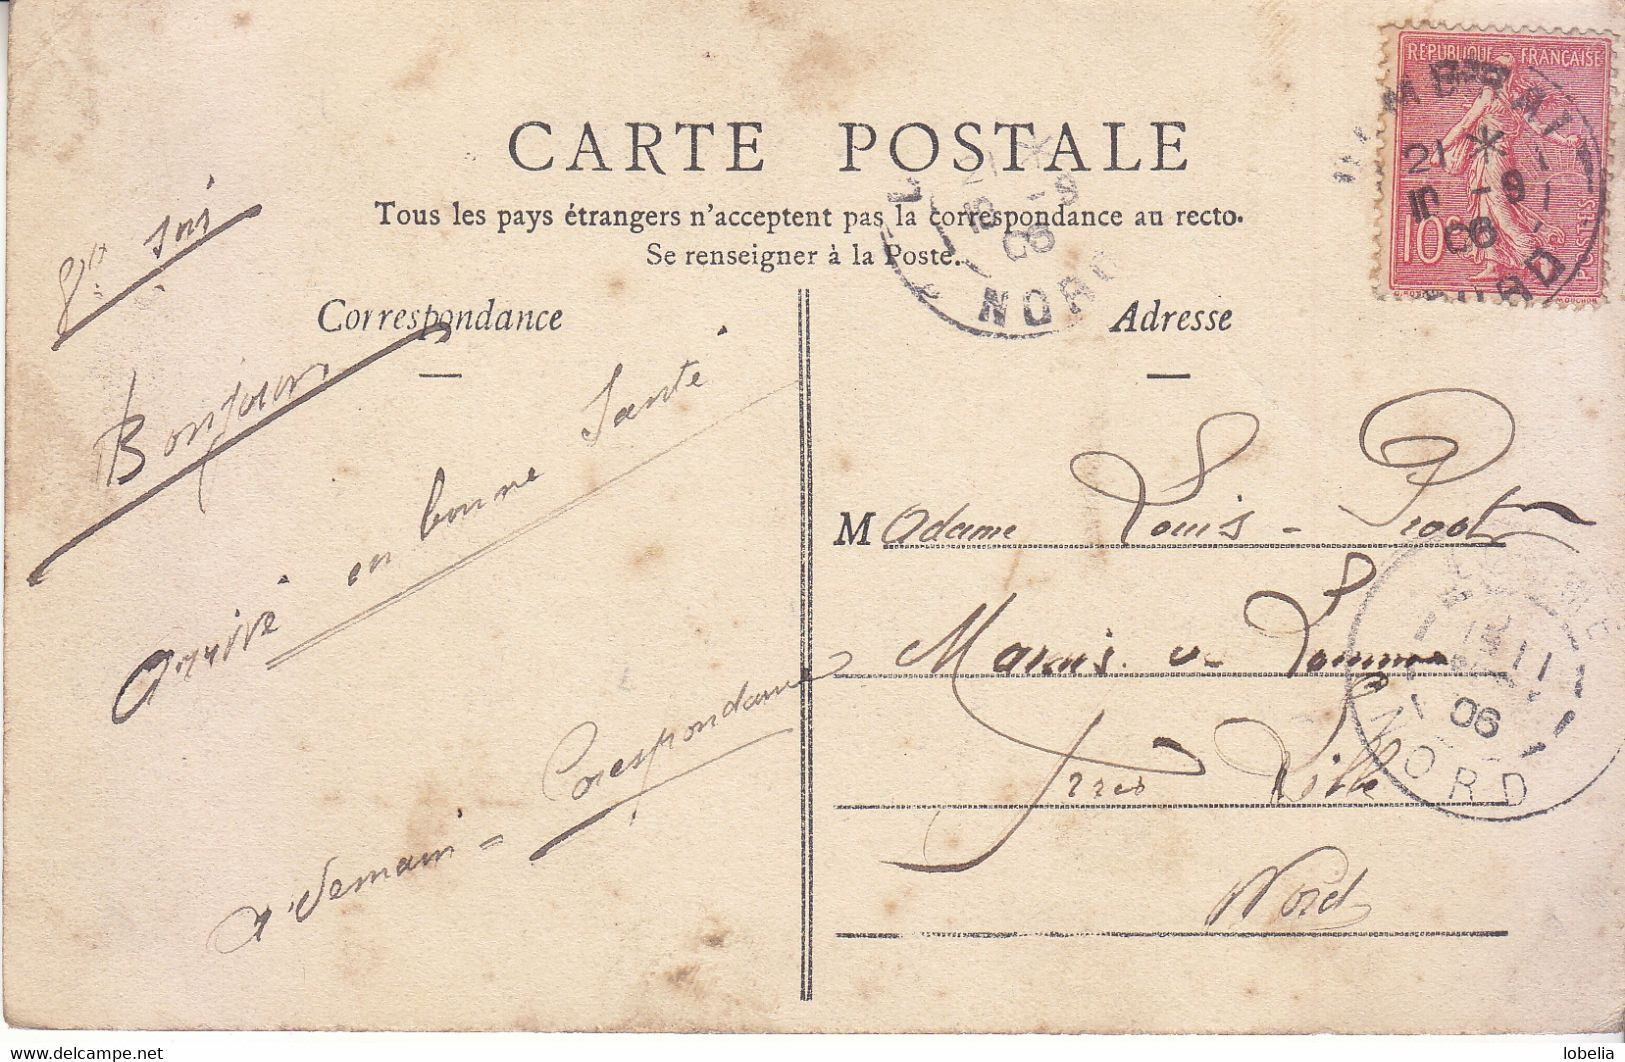 RÉPUBLIQUE FRANÇAISE
21 *
10 -9
06
10c
POSTES
NORD
CARTE POSTALE
Tous les pays étrangers n'acceptent pas la correspondance au recto.
Se renseigner à la Poste.
-9
06
NORD
Correspondance
Adresse
Bonjour
Arrivé en bonne Santé
a demain = Corespondance
Madame Louis - Proot
Marais de Lomme
près Lille
Nord
11
06
NORD
www.delcampe.net
lobelia